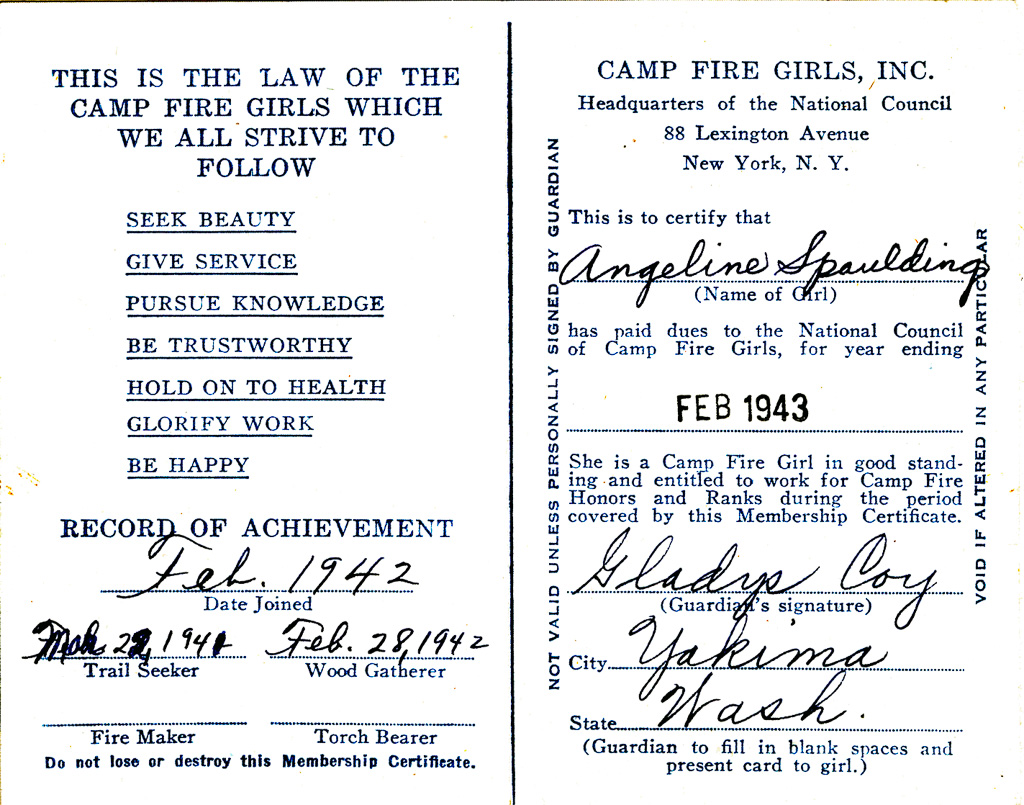 THIS IS THE LAW OF THE
CAMP FIRE GIRLS WHICH
WE ALL STRIVE TO
FOLLOW
SEEK BEAUTY
GIVE SERVICE
PURSUE KNOWLEDGE
BE TRUSTWORTHY
HOLD ON TO HEALTH
GLORIFY WORK
BE HAPPY
RECORD OF ACHIEVEMENT
Feb. 1942
Date Joined
1941 Feb. 28, 1942
Trail Seeker Wood Gatherer
Fire Maker Torch Bearer
Do not lose or destroy this Membership Certificate.
NOT VALID UNLESS PERSONALLY SIGNED BY GUARDIAN
CAMP FIRE GIRLS, INC.
Headquarters of the National Council
88 Lexington Avenue
New York, N. Y.
This is to certify that
Angeline Spaulding
(Name of Girl)
has paid dues to the National Council
of Camp Fire Girls, for year ending
FEB 1943
She is a Camp Fire Girl in good stand-
ing and entitled to work for Camp Fire
Honors and Ranks during the period
covered by this Membership Certificate.
Gladys Coy
(Guardian's signature)
City Yakima
State Wash.
(Guardian to fill in blank spaces and
present card to girl.)
VOID IF ALTERED IN ANY PARTICULAR